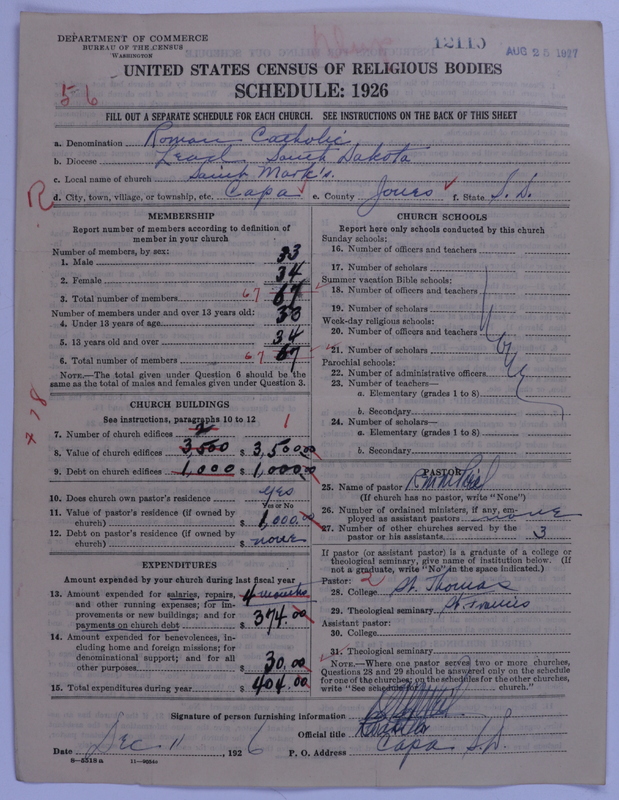 DEPARTMENT OF COMMERCE
BUREAU OF THE CENSUS
WASHINGTON
12115
AUG 25 1927
UNITED STATES CENSUS OF RELIGIOUS BODIES
SCHEDULE: 1926
56
FILL OUT A SEPARATE SCHEDULE FOR EACH CHURCH. SEE INSTRUCTIONS ON THE BACK OF THIS SHEET
a. Denomination Roman Catholic
b. Diocese Lead, South Dakota
c. Local name of church Saint Mark's.
R
d. City, town, village, or township, etc. Capa e. County Jones f. State S. D.
MEMBERSHIP
Report number of members according to definition of
member in your church
Number of members, by sex:
1. Male 33
2. Female 34
3. Total number of members 67 67
Number of members under and over 13 years old:
4. Under 13 years of age 33
5. 13 years old and over 34
6. Total number of members 67 67
NOTE.—The total given under Question 6 should be the
same as the total of males and females given under Question 3.
CHURCH BUILDINGS
See instructions, paragraphs 10 to 12
7. Number of church edifices 2 1
8. Value of church edifices 3,500 $ 3,500.00
9. Debt on church edifices 1,000 $ 1,000.00
10. Does church own pastor's residence yes
Yes or No
11. Value of pastor's residence (if owned by
church) $ 1,000.00
12. Debt on pastor's residence (if owned by
church) $ none
EXPENDITURES
Amount expended by your church during last fiscal year
13. Amount expended for salaries, repairs, 4 months
and other running expenses; for im-
provements or new buildings; and for
payments on church debt $ 374.00
14. Amount expended for benevolences, in-
cluding home and foreign missions; for
denominational support; and for all
other purposes $ 30.00
15. Total expenditures during year $ 404.00
CHURCH SCHOOLS
Report here only schools conducted by this church
Sunday schools:
16. Number of officers and teachers
17. Number of scholars
Summer vacation Bible schools:
18. Number of officers and teachers
19. Number of scholars
Week-day religious schools:
20. Number of officers and teachers
21. Number of scholars
Parochial schools:
22. Number of administrative officers
23. Number of teachers—
a. Elementary (grades 1 to 8)
b. Secondary
24. Number of scholars—
a. Elementary (grades 1 to 8)
b. Secondary
PASTOR
25. Name of pastor
(If church has no pastor, write "None")
26. Number of ordained ministers, if any, em-
ployed as assistant pastors none
27. Number of other churches served by the
pastor or his assistants 3
If pastor (or assistant pastor) is a graduate of a college or
theological seminary, give name of institution below. (If
not a graduate, write "No" in the space indicated.)
Pastor: 2
28. College St. Thomas
29. Theological seminary St. Francis
Assistant pastor:
30. College
31. Theological seminary
NOTE.—Where one pastor serves two or more churches,
Questions 28 and 29 should be answered only on the schedule
for one of the churches; on the schedules for the other churches,
write "See schedule for church."
Signature of person furnishing information
Official title
Date Dec 11, 1926 P. O. Address Capa S.D.
8—5518 a 11—9054